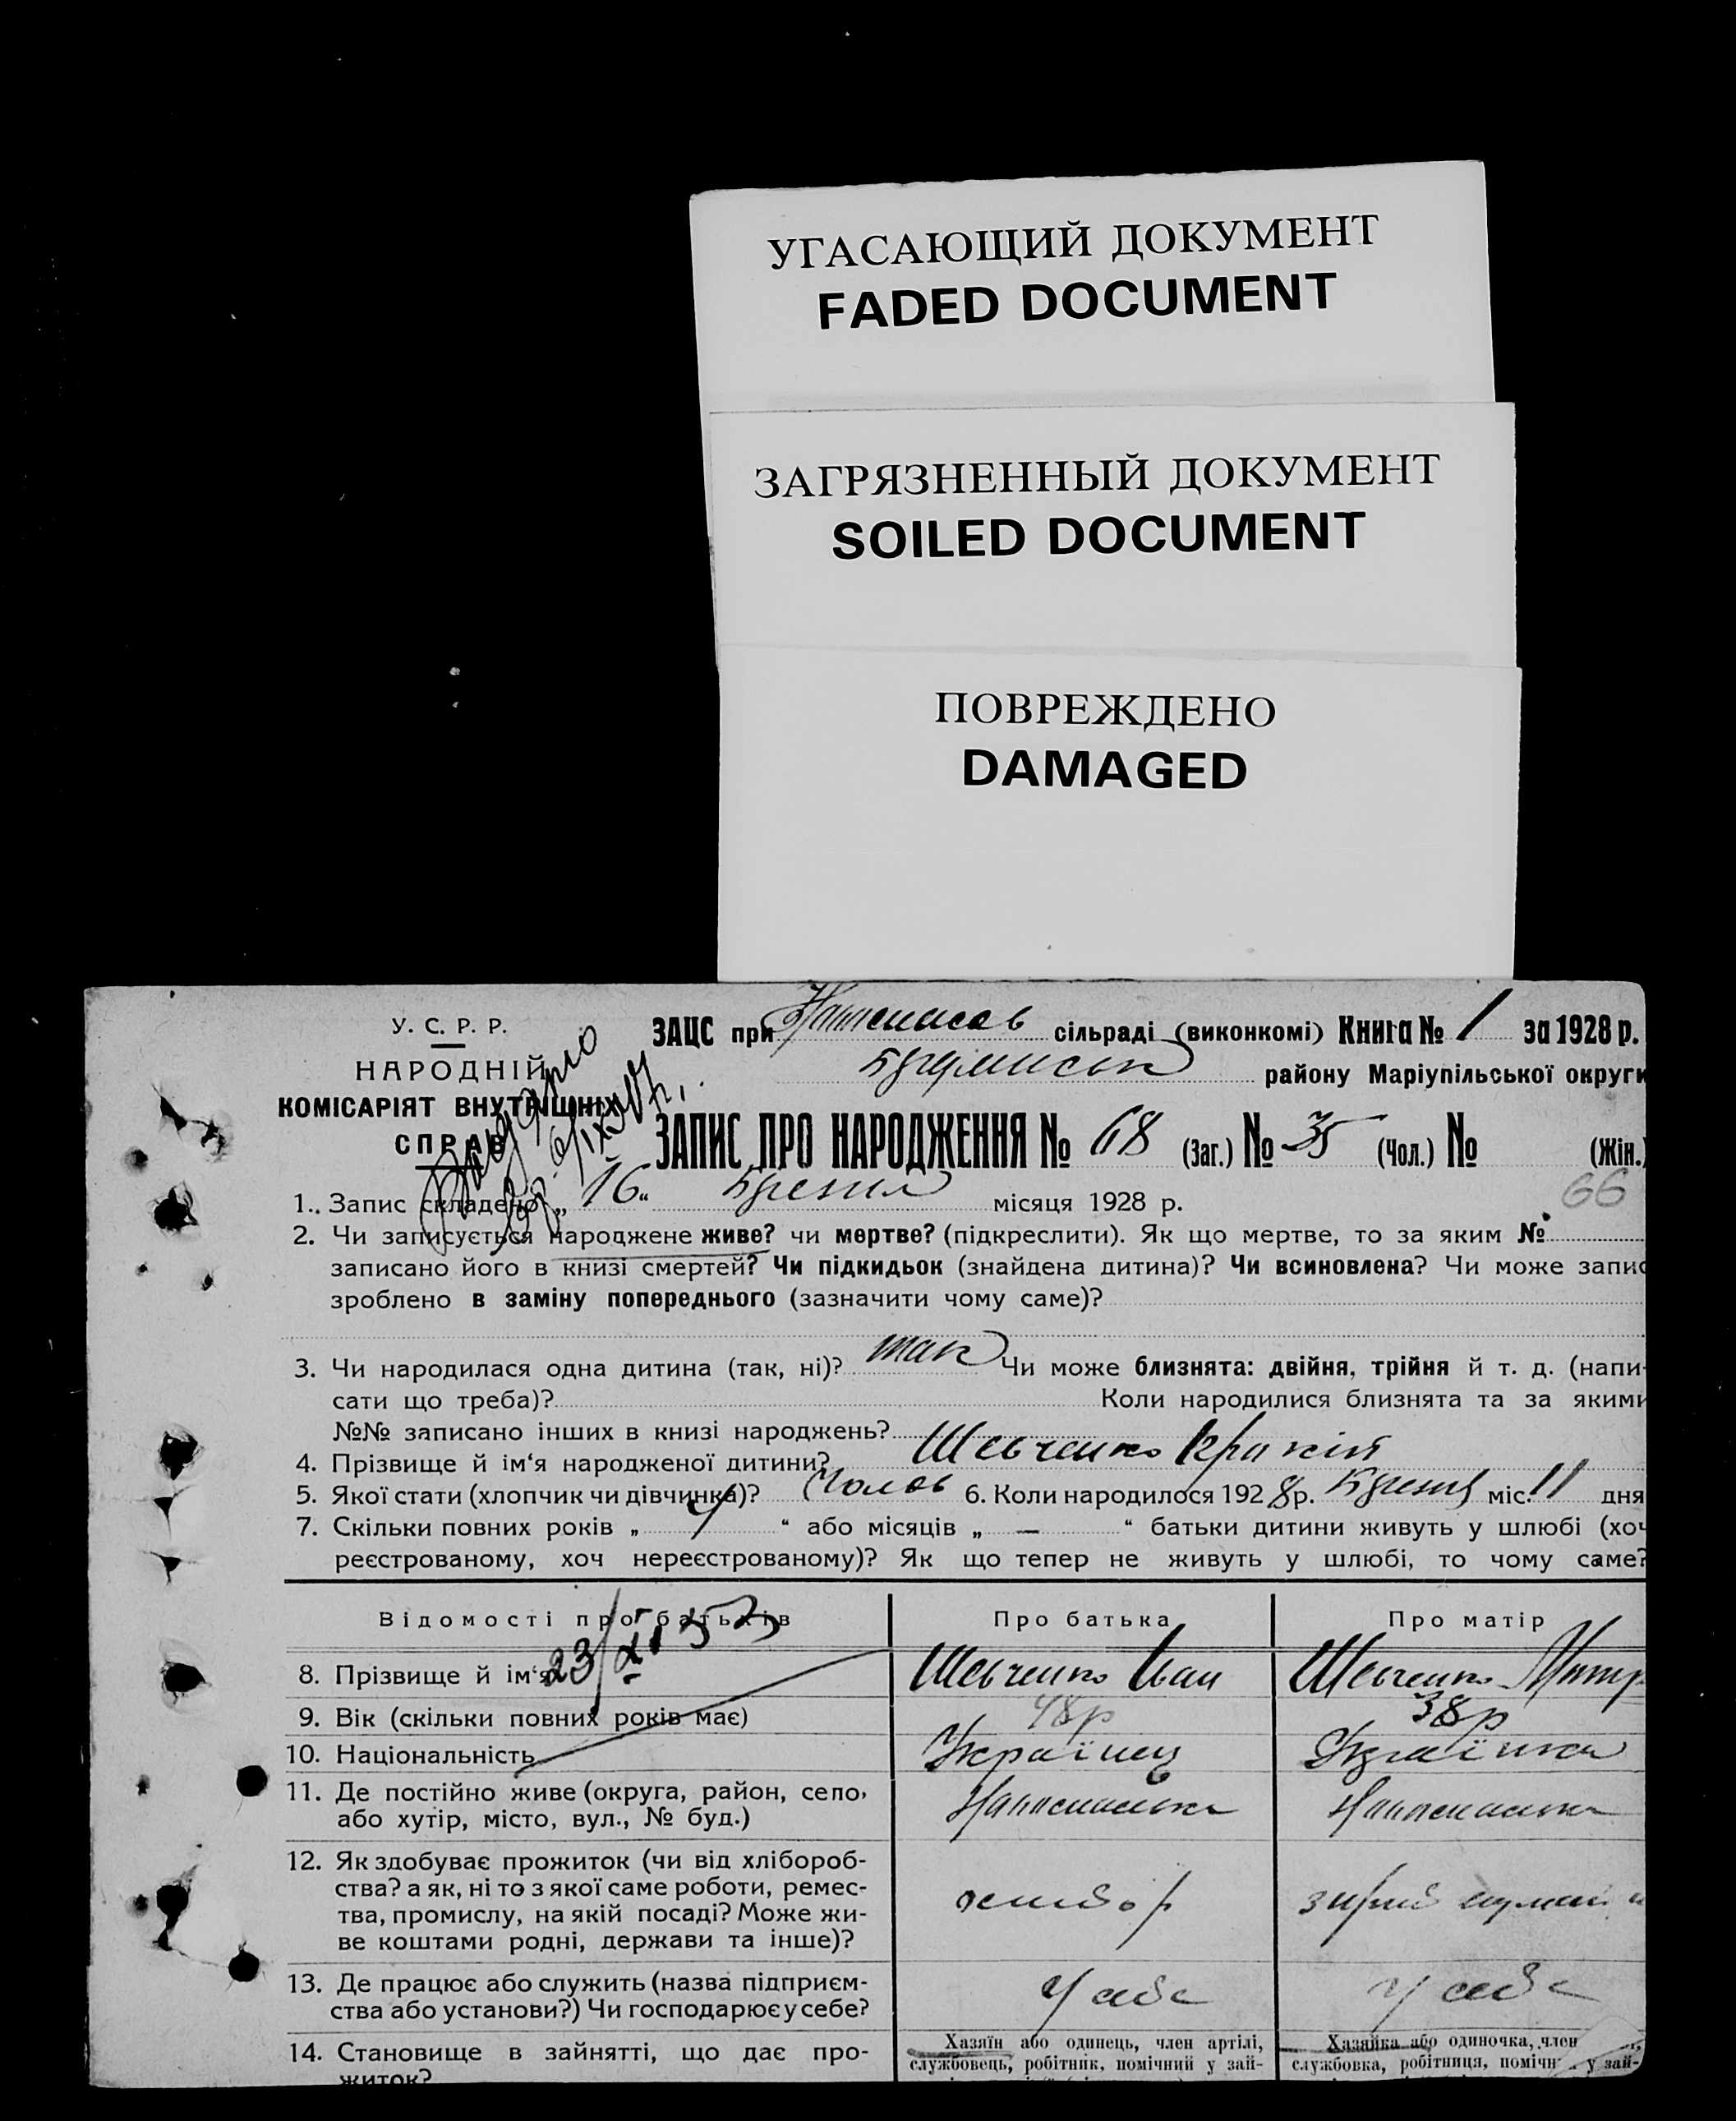 УГАСАЮЩИЙ ДОКУМЕНТ
FADED DOCUMENT
ЗАГРЯЗНЕННЫЙ ДОКУМЕНТ
SOILED DOCUMENT
ПОВРЕЖДЕНО
DAMAGED
У. С. Р. Р.
НАРОДНІЙ
КОМІСАРІЯТ ВНУТРІШНІХ
СПРАВ
ЗАЦС при сільраді (виконкомі) Книга № 1 за 1928 р.
району Маріупільської округи
ЗАПИС ПРО НАРОДЖЕННЯ № 68 (Заг.) № 35 (Чол.) № (Жін.)
66
1. Запис складено „ 16 “ місяця 1928 р.
2. Чи записується народжене живе? чи мертве? (підкреслити). Як що мертве, то за яким №
записано його в книзі смертей? Чи підкидьок (знайдена дитина)? Чи всиновлена? Чи може запис
зроблено в заміну попереднього (зазначити чому саме)?
3. Чи народилася одна дитина (так, ні)? так Чи може близнята: двійня, трійня й т. д. (напи-
сати що треба)? Коли народилися близнята та за якими
№№ записано інших в книзі народжень?
4. Прізвище й ім‘я народженої дитини? Шевченко
5. Якої стати (хлопчик чи дівчинка)? Чолов 6. Коли народилося 1928 р. міс. 11 дня
7. Скільки повних років „ “ або місяців „ — “ батьки дитини живуть у шлюбі (хоч
реєстрованому, хоч нереєстрованому)? Як що тепер не живуть у шлюбі, то чому саме?
Відомості про батьків Про батька Про матір
23/XI 53
8. Прізвище й ім‘я Шевченко Иван Шевченко
9. Вік (скільки повних років має) 48 р 38 р
10. Національність Українец Українка
11. Де постійно живе (округа, район, село,
або хутір, місто, вул., № буд.)
12. Як здобуває прожиток (чи від хлібороб-
ства? а як, ні то з якої саме роботи, ремес-
тва, промислу, на якій посаді? Може жи-
ве коштами родні, держави та інше)?
13. Де працює або служить (назва підприєм-
ства або установи?) Чи господарює у себе?
У себе У себе
14. Становище в зайнятті, що дає про-
житок?
Хазяїн або одинець, член артілі,
службовець, робітник, помічний у зай-
Хазяйка або одиночка, член
службовка, робітниця, помічн у зай-